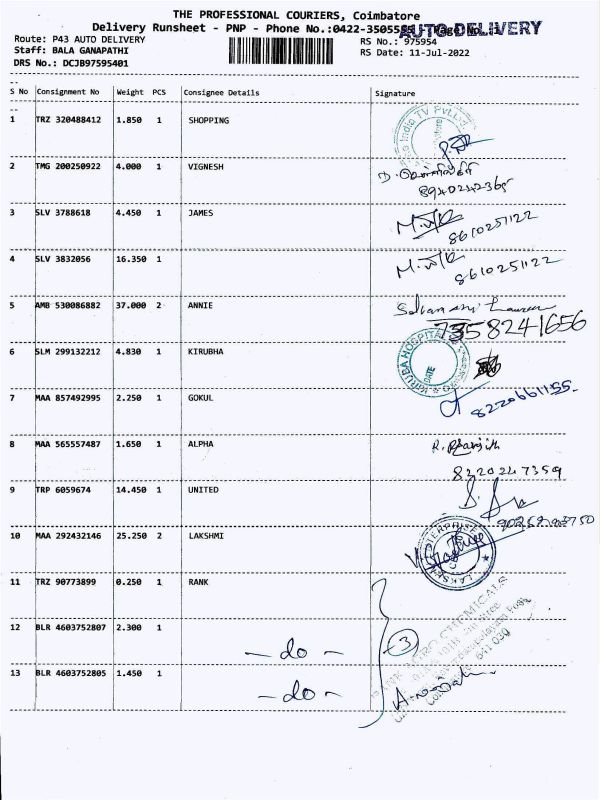 THE PROFESSIONAL COURIERS, Coimbatore
Delivery Runsheet - PNP - Phone No.:0422-3505555
AUTO DELIVERY
Route: P43 AUTO DELIVERY
RS No.: 975954
Staff: BALA GANAPATHI
RS Date: 11-Jul-2022
DRS No.: DCJB97595401
S No Consignment No Weight PCS Consignee Details Signature
1 TRZ 320488412 1.850 1 SHOPPING
India TV Pvt.Ltd
2 TMG 200250922 4.000 1 VIGNESH
3 SLV 3788618 4.450 1 JAMES
8610251122
4 SLV 3832056 16.350 1
8610251122
5 AMB 530086882 37.000 2 ANNIE
7358241656
6 SLM 299132212 4.830 1 KIRUBHA
KIRUBA HOSPITAL
DATE
7 MAA 857492995 2.250 1 GOKUL
8220661155
8 MAA 565557487 1.650 1 ALPHA
8220247359
9 TRP 6059674 14.450 1 UNITED
10 MAA 292432146 25.250 2 LAKSHMI
11 TRZ 90773899 0.250 1 RANK
AGRO CHEMICALS
641 030
12 BLR 4603752807 2.300 1
- do -
3
13 BLR 4603752805 1.450 1
- do -